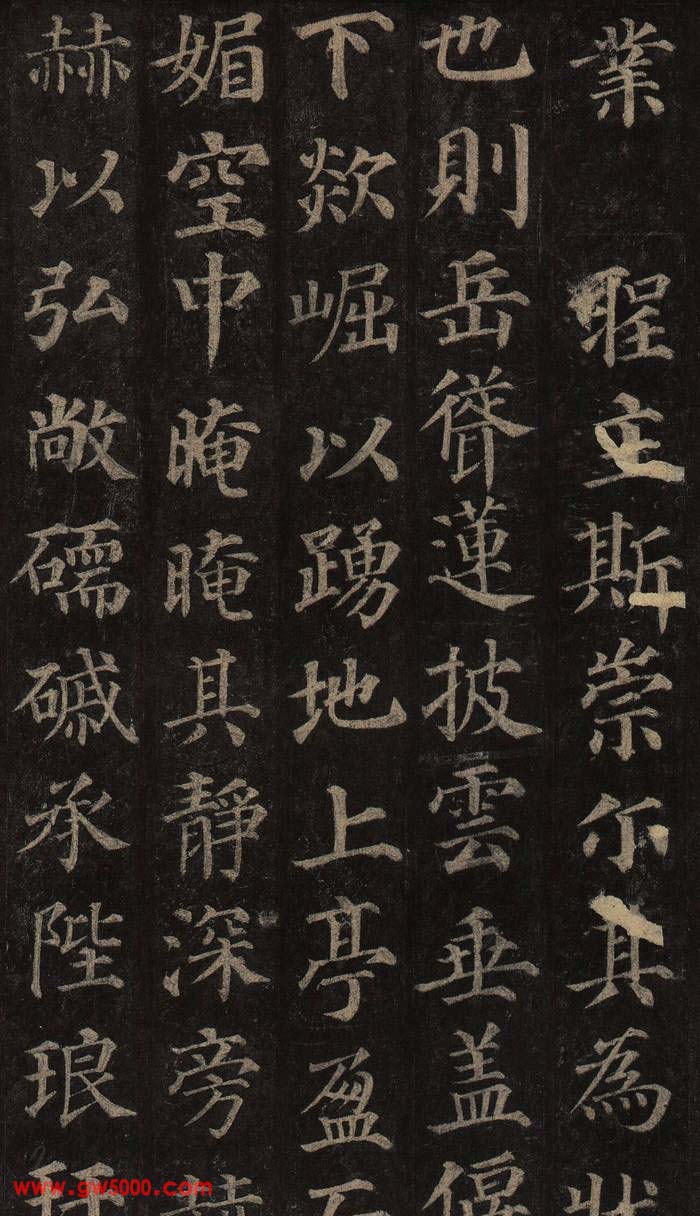 業 聖主斯崇尓其為狀
也則岳聳蓮披雲垂盖偃
下欻崛以踴地上亭盈而
媚空中晻晻其靜深旁赫
赫以弘敞礝磩承陛琅玕
www.gw5000.com